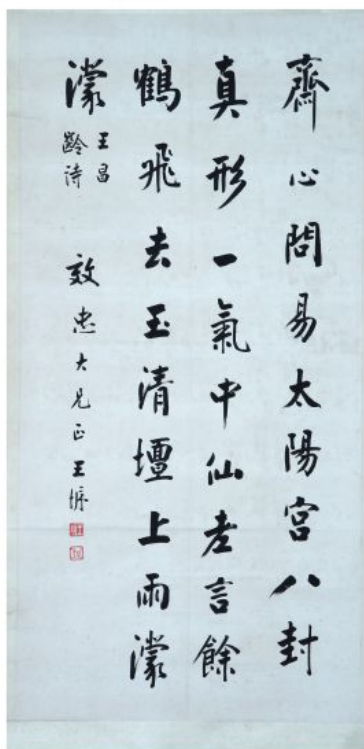 齋心問易太陽宮八封
真形一氣中仙老言餘
鶴飛去玉清壇上雨濛
濛
王昌
齡詩
效忠大兄正 王